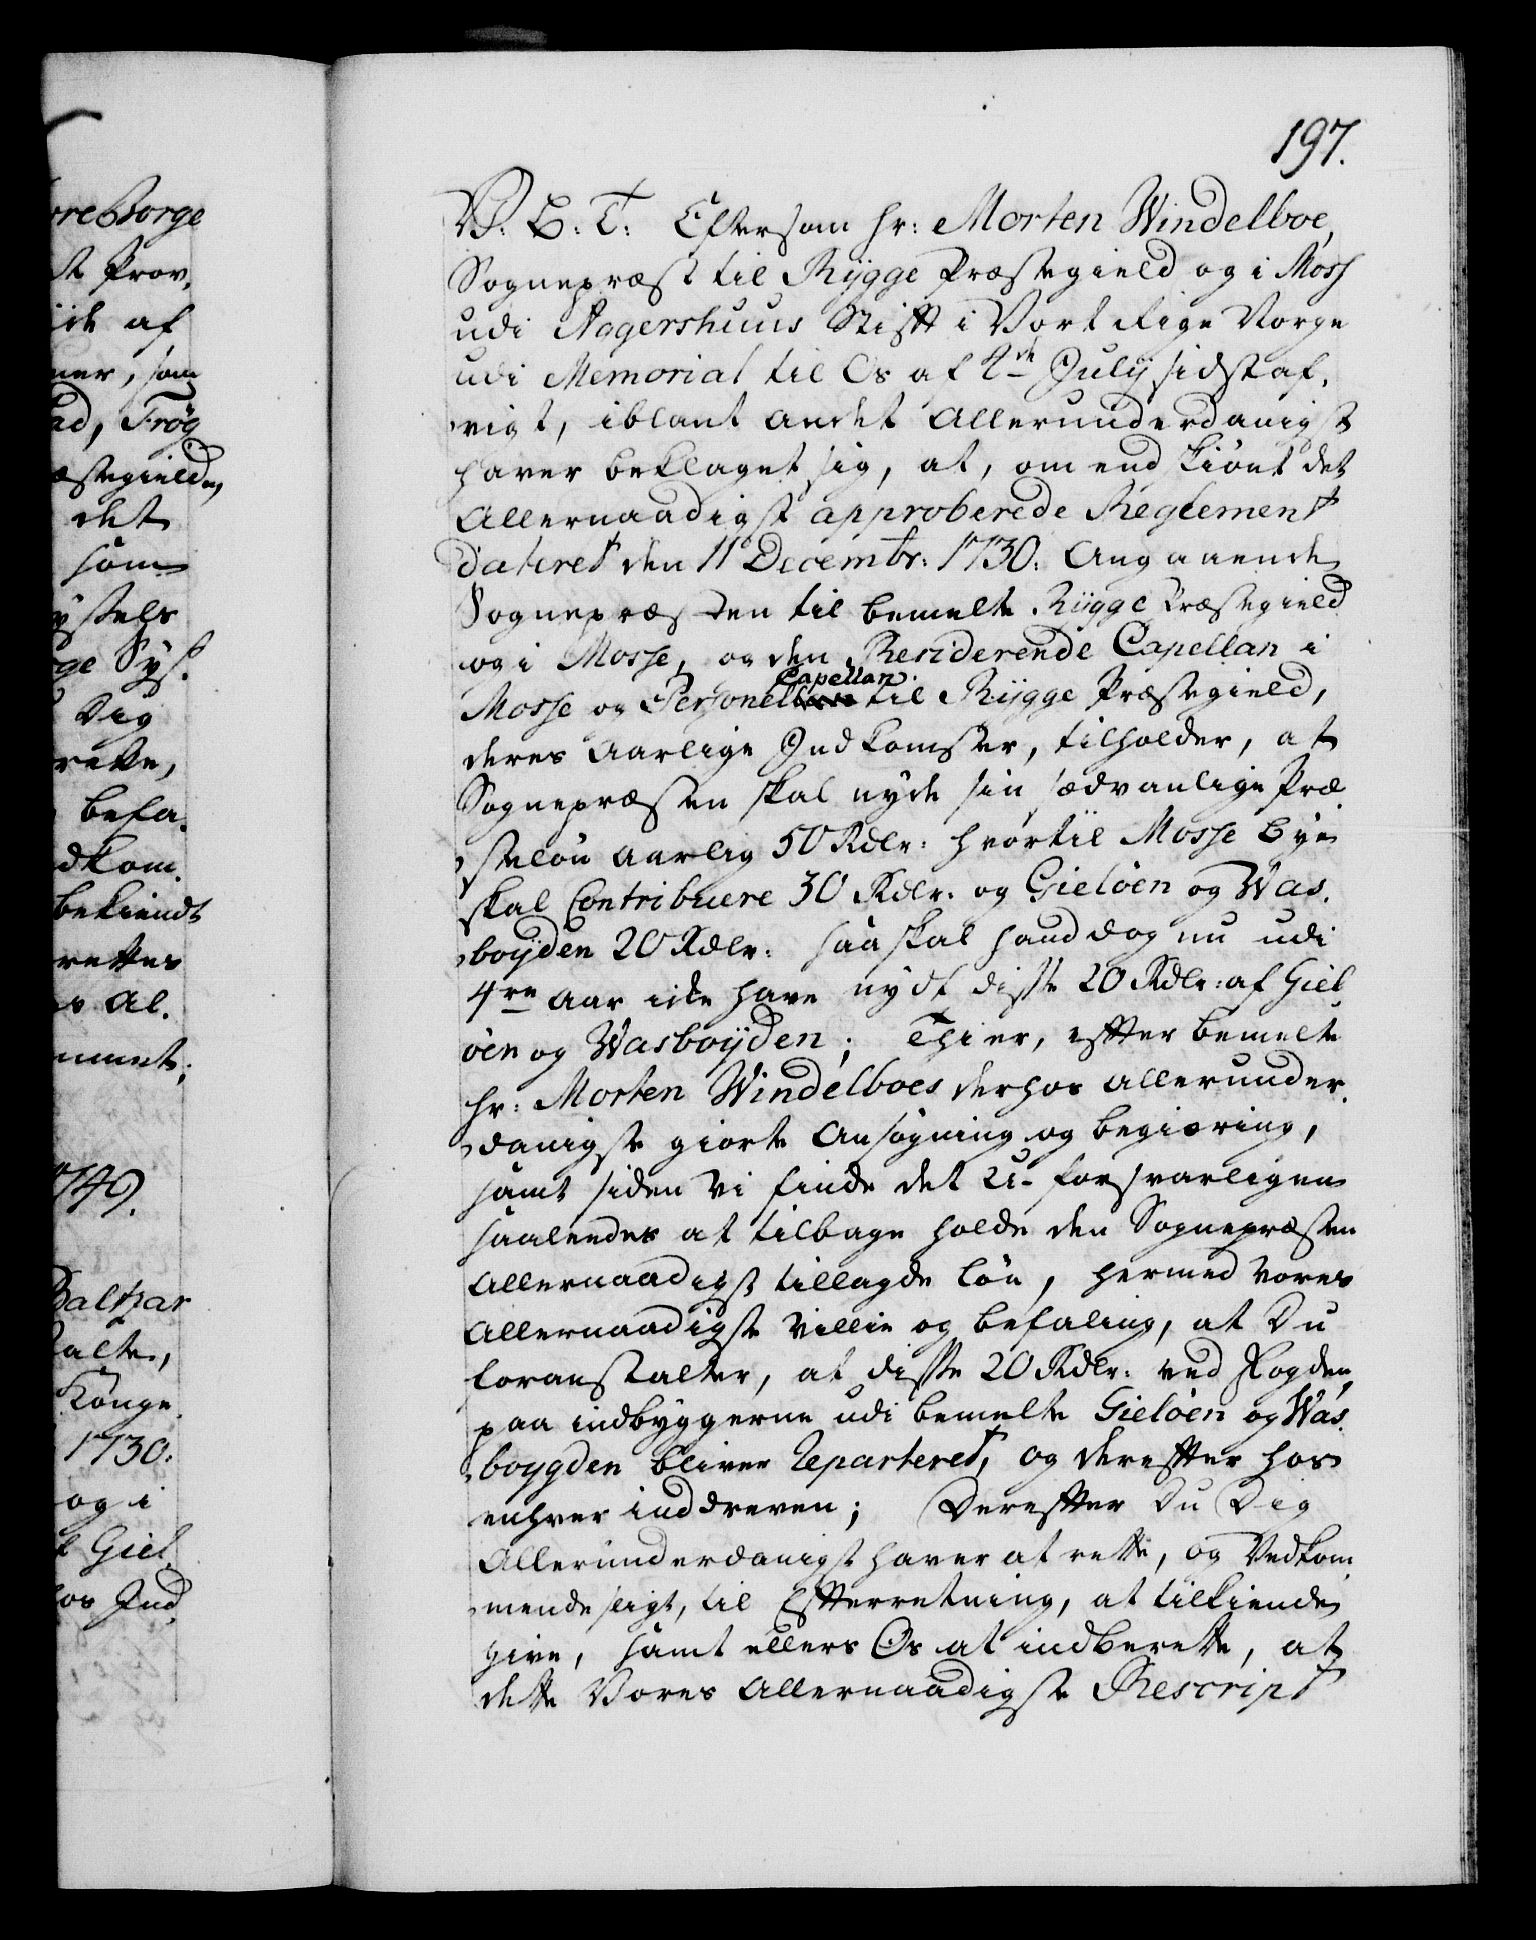 197.
V. G. T. Eftersom hr: Morten Windelboe,
Sognepræst til Rygge Præstegield og i Moss
udi Aggershuus Stift i Vort Rige Norge
udi Memorial til Os af 4de July sidstaf,
vigt, iblant andet Allerunderdanigst
haver beklaget sig, at, om end skiønt det
Allernaadigst approberede Reglement
dateret den 11 Decembr: 1730. Angaaende
Sognepræsten til bemelte Rygge Præstegield
og i Mosse, og den Residerende Capellan i
Mosse og Personel Capellan til Rygge Præstegield,
deres Aarlige Indkomster, tilholder, at
Sognepræsten skal nyde sin sædvanlige Præ
steløn aarlig 50 Rdlr: hvortil Mosse Bye
skal Contribuere 30 Rdlr. og Gieløen og Was,
boyden 20 Rdlr: saa skal hand dog nu udi
4re Aar icke have nydt disse 20 Rdlr: af Giel
øen og Wasboyden; Thi er, efter bemelte
hr: Morten Windelboes derhos allerunder,
danigste giorte Ansøgning og begiæring,
samt siden Vi finde det U-forsvarligen
saaledes at tilbage holde den Sognepræsten
Allernaadigst tillagde Løn, hermed Vores
Allernaadigste Villie og befaling, at Du
foranstalter, at disse 20 Rdlr: ved Fogden,
paa indbyggerne udi bemelte Gieløen og Was,
boygden bliver Reparteret, og derefter hos
enhver inddreven; Derefter Du Dig
Allerunderdanigst haver at rette, og Vedkom,
mende sligt, til Efterretning, at tilkiende
give, samt ellers Os at indberette, at
dette Vores Allernaadigste Rescript
oreBorge
st Prov,
ide af
ner, som
ad, Frøg
æstegielde,
det
som
ystels
ge Sys.
Dig
rette,
befa,
dkom,
bekiendt
rettes
Al.
1749.
Baltzar
alte,
Konge
1730:
og i
Giel,
os Ind,